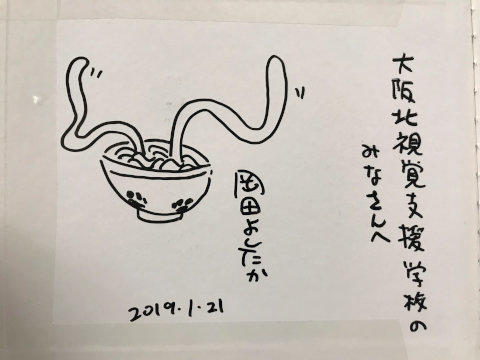 大阪北視覚支援学校の
みなさんへ
岡田よしたか
2019.1.21